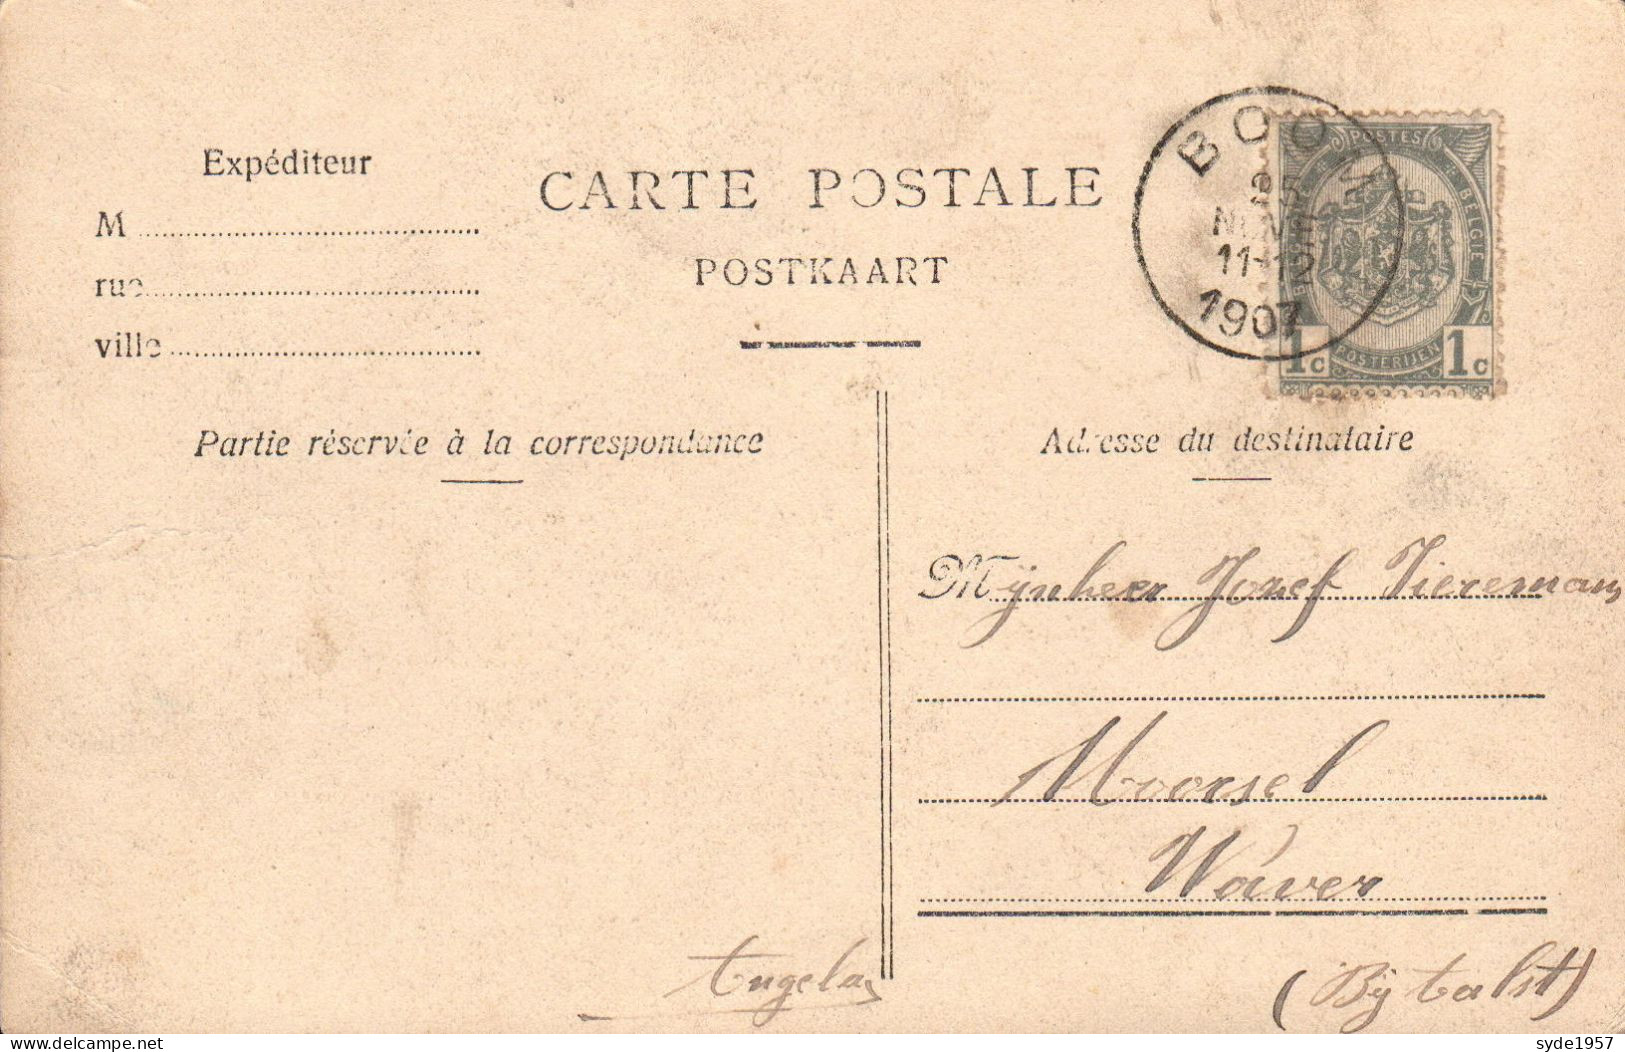 Expéditeur
M
rue
ville
CARTE POSTALE
POSTKAART
BOOM
25
NOV
11-12
1907
POSTES
BELGIE
POSTERIJEN
1c 1c
Partie réservée à la correspondance
Adresse du destinataire
Mijnheer Jozef Tieremans
Moorsel
Waver
Angela
(Bij
syde1957